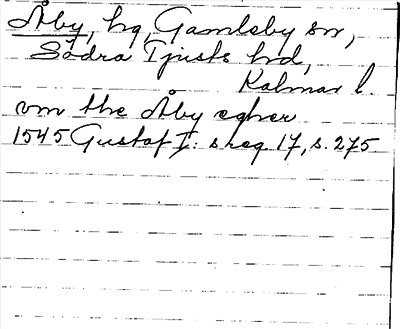 Åby, hg, Gamleby sn,
Södra Tjusts hd,
Kalmar l.
vm the Åby egher
1545 Gustaf I: s reg 17, s. 275